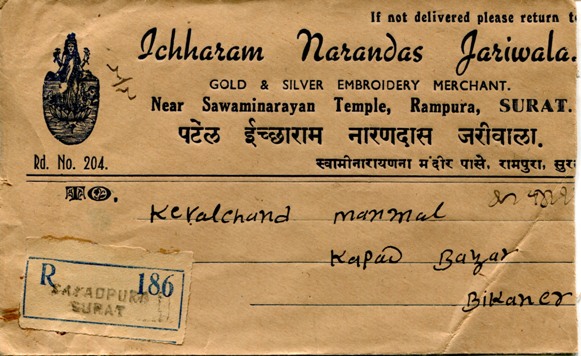 If not delivered please return
Ichharam Narandas Jariwala.
GOLD & SILVER EMBROIDERY MERCHANT.
Near Sawaminarayan Temple, Rampura, SURAT.
पटेल ईच्छाराम नारणदास जरीवाला.
Rd. No. 204.
स्वामीनारायणना मंदीर पासे, रामपुरा,
TO.
Kevalchand manmal
Kapad Bazar
Bikaner
R 186
SURAT